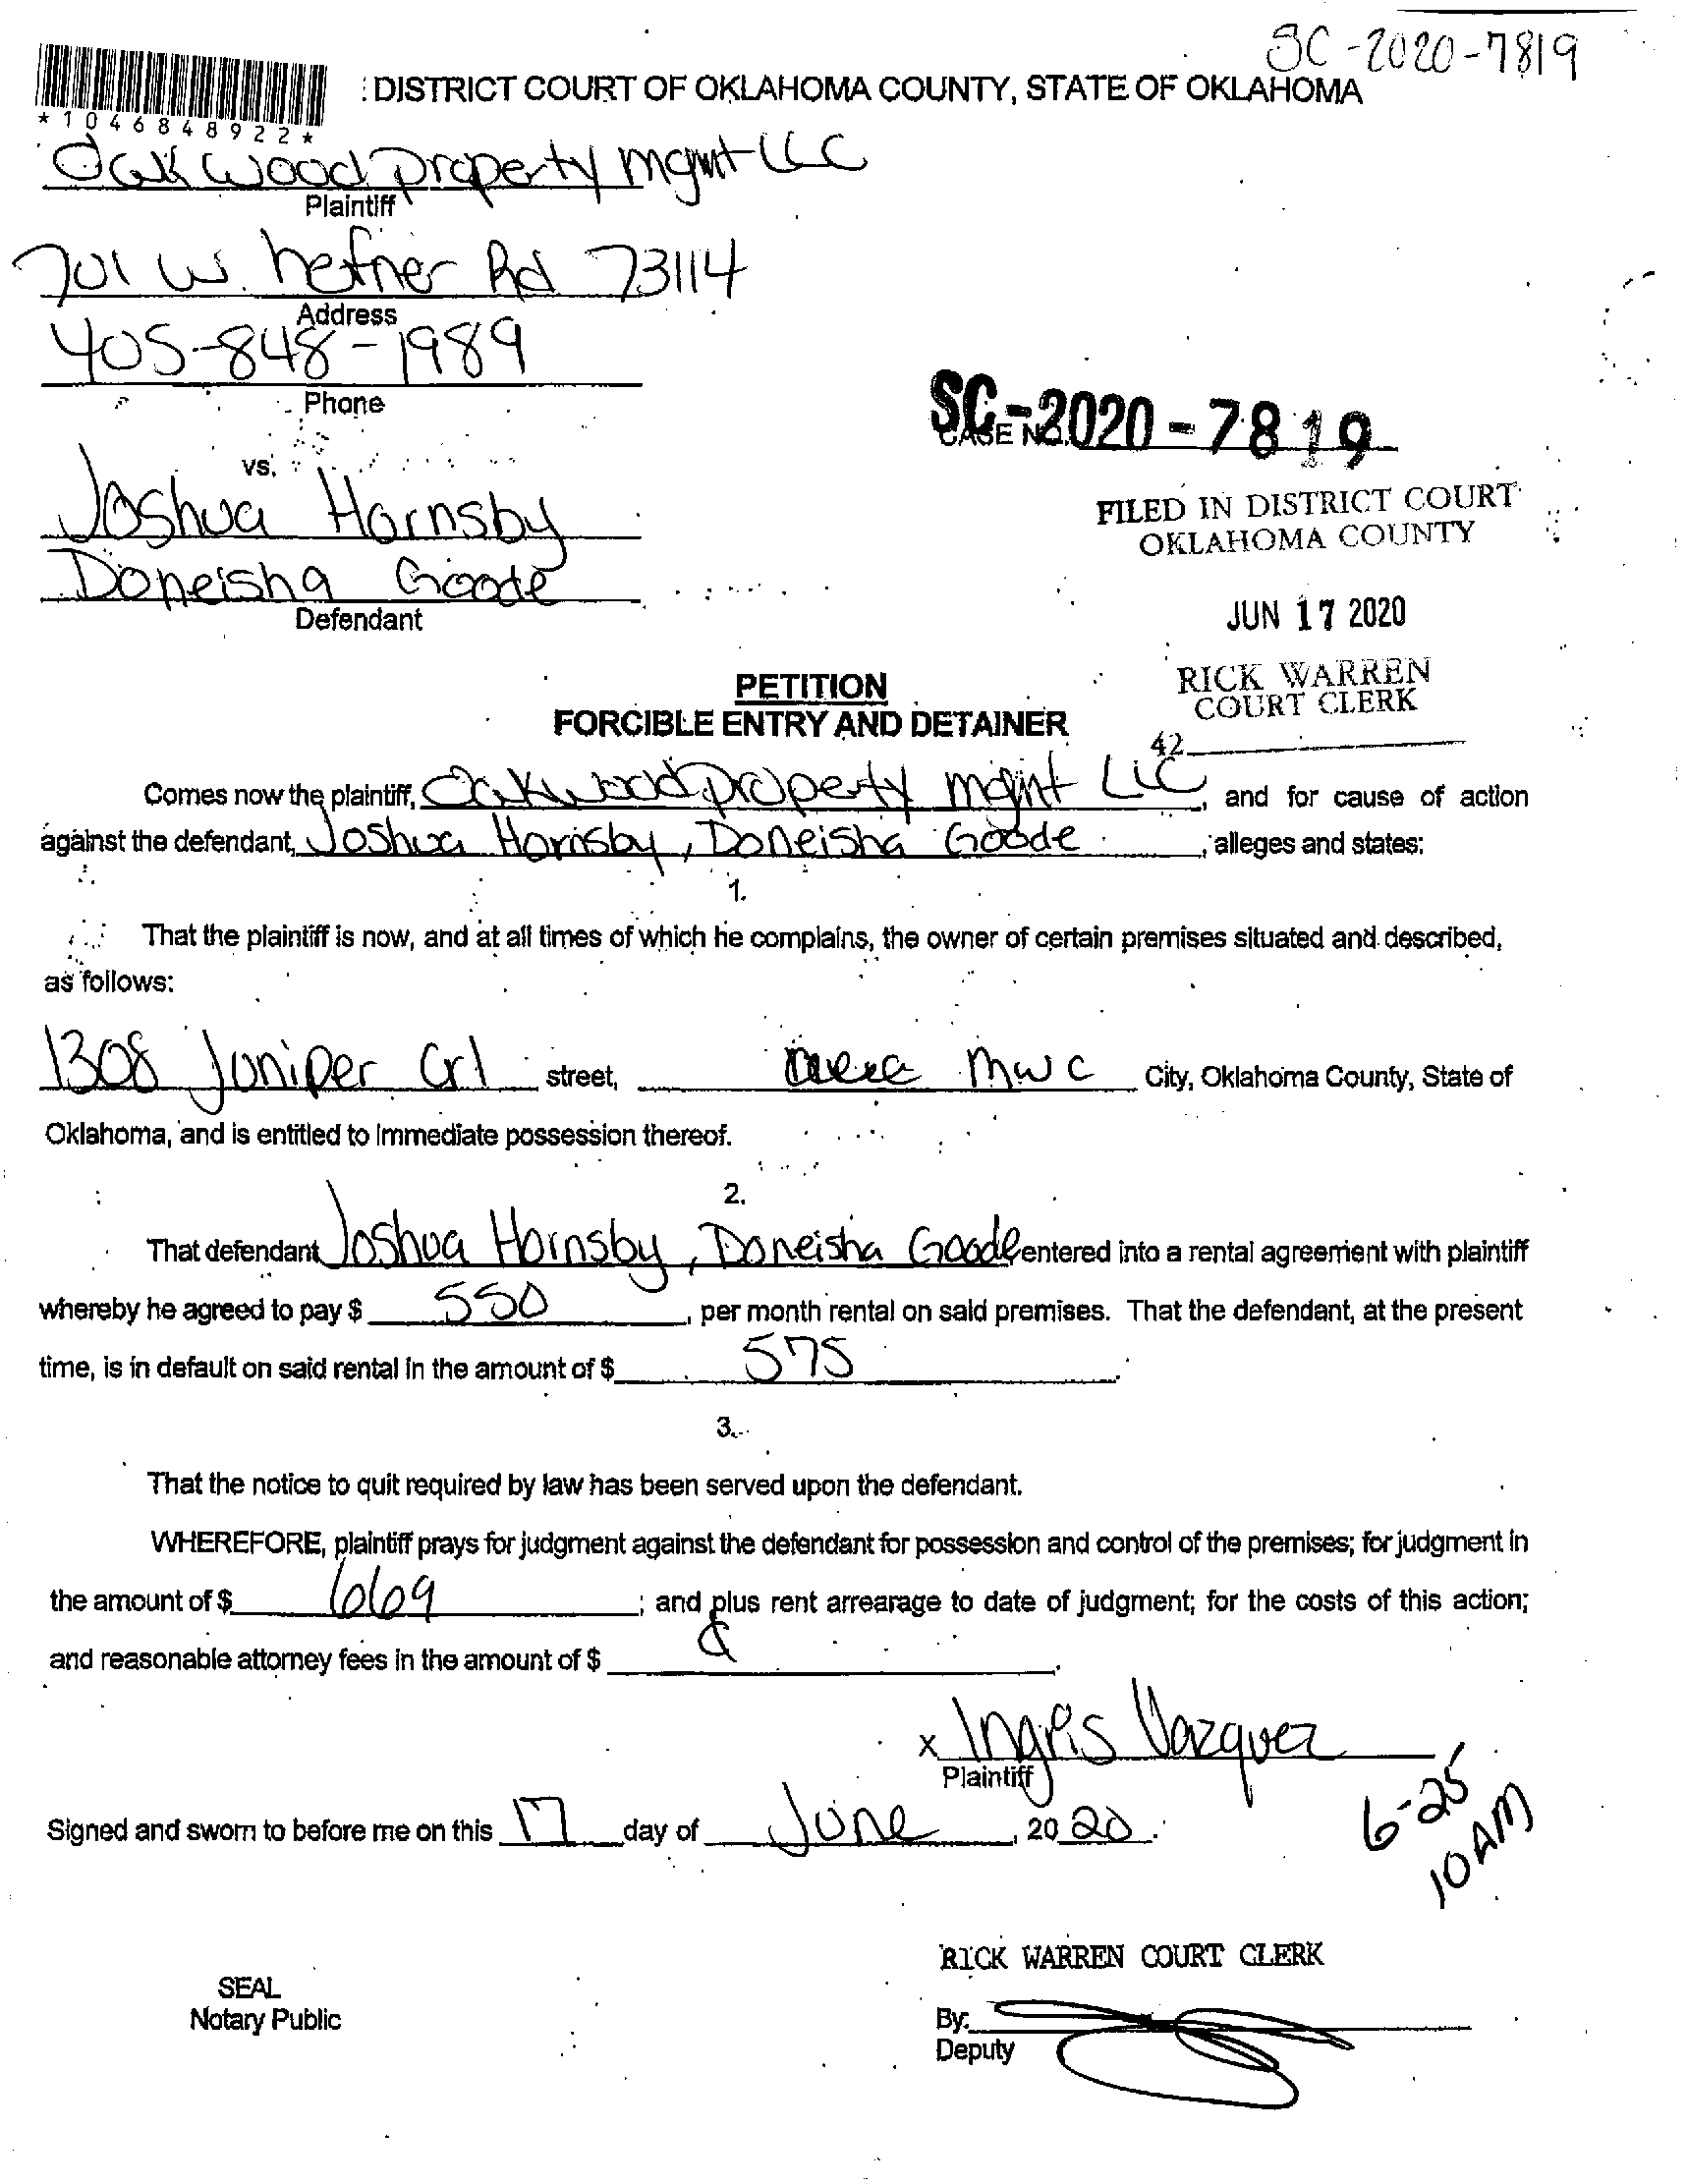 SC-2020-7819
: DISTRICT COURT OF OKLAHOMA COUNTY, STATE OF OKLAHOMA
*1046848922*
Oakwood property mgmt LLC
Plaintiff
701 W. hefner Rd 73114
Address
405-848-1989
Phone
SC-2020-7819
CASE NO.
vs.
Joshua Hornsby
FILED IN DISTRICT COURT
OKLAHOMA COUNTY
Doneisha Goode
Defendant
JUN 17 2020
PETITION
RICK WARREN
COURT CLERK
FORCIBLE ENTRY AND DETAINER
42
Comes now the plaintiff, Oakwood property mgmt LLC, and for cause of action
against the defendant, Joshua Hornsby, Doneisha Goode, alleges and states:
1.
That the plaintiff is now, and at all times of which he complains, the owner of certain premises situated and described,
as follows:
1308 Juniper Crl street, MWC City, Oklahoma County, State of
Oklahoma, and is entitled to immediate possession thereof.
2.
That defendant Joshua Hornsby, Doneisha Goode entered into a rental agreement with plaintiff
whereby he agreed to pay $ 550, per month rental on said premises. That the defendant, at the present
time, is in default on said rental in the amount of $ 575.
3.
That the notice to quit required by law has been served upon the defendant.
WHEREFORE, plaintiff prays for judgment against the defendant for possession and control of the premises; for judgment in
the amount of $ 669; and plus rent arrearage to date of judgment; for the costs of this action;
and reasonable attorney fees in the amount of $
x Ingris Vazquez
Plaintiff
Signed and sworn to before me on this 17 day of June, 2020.
6-25
10 AM
RICK WARREN COURT CLERK
SEAL
Notary Public
By:
Deputy